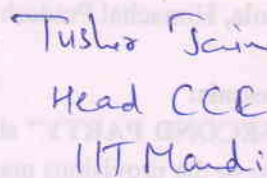 Tushar Jain
Head CCE
IIT Mandi